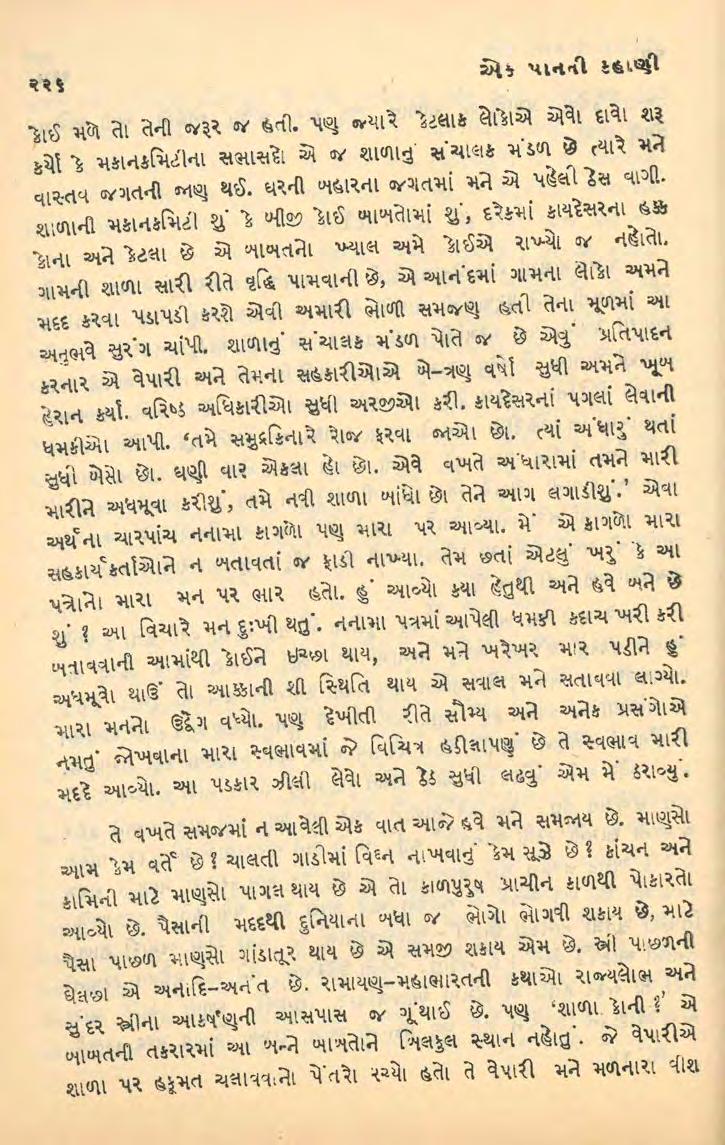 ૨૨૬
એક પાનની કહાણી
કોઈ મળે તો તેની જરૂર જ હતી. પણ જ્યારે કેટલાક લોકોએ એવો દાવો શરૂ
કર્યો કે મકાનકમિટીના સભાસદો એ જ શાળાનું સંચાલક મંડળ છે ત્યારે મને
વાસ્તવ જગતની જાણ થઈ. ઘરની બહારના જગતમાં મને એ પહેલી ઠેસ વાગી.
શાળાની મકાનકમિટી શું કે બીજી કોઈ બાબતોમાં શું, દરેકમાં કાયદેસરના હક્ક
કોના અને કેટલા છે એ બાબતનો ખ્યાલ અમે કોઈએ રાખ્યો જ નહોતો.
ગામની શાળા સારી રીતે વૃદ્ધિ પામવાની છે, એ આનંદમાં ગામના લોકો અમને
મદદ કરવા પડાપડી કરશે એવી અમારી ભોળી સમજણ હતી તેના મૂળમાં આ
અનુભવે સુરંગ ચાંપી. શાળાનું સંચાલક મંડળ પોતે જ છે એવું પ્રતિપાદન
કરનાર એ વેપારી અને તેમના સહકારીઓએ બે–ત્રણ વર્ષો સુધી અમને ખૂબ
હેરાન કર્યાં. વરિષ્ઠ અધિકારીઓ સુધી અરજીઓ કરી. કાયદેસરનાં પગલાં લેવાની
ધમકીઓ આપી. ‘તમે સમુદ્રકિનારે રોજ ફરવા જાઓ છો. ત્યાં અંધારું થતાં
સુધી બેસો છો. ઘણી વાર એકલા હો છો. એવે વખતે અંધારામાં તમને મારી
મારીને અધમૂવા કરીશું, તમે નવી શાળા બાંધો છો તેને આગ લગાડીશું.’ એવા
અર્થના ચારપાંચ નનામા કાગળો પણ મારા પર આવ્યા. મેં એ કાગળો મારા
સહકાર્યકર્તાઓને ન બતાવતાં જ ફાડી નાખ્યા. તેમ છતાં એટલું ખરું કે આ
પત્રોનો મારા મન પર ભાર હતો. હું આવ્યો કયા હેતુથી અને હવે બને છે
શું ? આ વિચારે મન દુઃખી થતું. નનામા પત્રમાં આપેલી ધમકી કદાચ ખરી કરી
બતાવવાની આમાંથી કોઈને ઇચ્છા થાય, અને મને ખરેખર માર પડીને હું
અધમૂવો થાઉં તો આક્કાની શી સ્થિતિ થાય એ સવાલ મને સતાવવા લાગ્યો.
મારા મનનો ઉદ્વેગ વધ્યો. પણ દેખીતી રીતે સૌમ્ય અને અનેક પ્રસંગોએ
નમતું જોખવાના મારા સ્વભાવમાં જે વિચિત્ર હઠીલાપણું છે તે સ્વભાવ મારી
મદદે આવ્યો. આ પડકાર ઝીલી લેવો અને ઠેઠ સુધી લઢવું એમ મેં ઠરાવ્યું.
તે વખતે સમજમાં ન આવેલી એક વાત આજે હવે મને સમજાય છે. માણસો
આમ કેમ વર્તે છે? ચાલતી ગાડીમાં વિઘ્ન નાખવાનું કેમ સૂઝે છે? કાંચન અને
કામિની માટે માણસો પાગલ થાય છે એ તો કાળપુરુષ પ્રાચીન કાળથી પોકારતો
આવ્યો છે. પૈસાની મદદથી દુનિયાના બધા જ ભોગો ભોગવી શકાય છે, માટે
પૈસા પાછળ માણસો ગાંડાતૂર થાય છે એ સમજી શકાય એમ છે. સ્ત્રી પાછળની
ઘેલછા એ અનાદિ–અનંત છે. રામાયણ–મહાભારતની કથાઓ રાજ્યલોભ અને
સુંદર સ્ત્રીના આકર્ષણની આસપાસ જ ગૂંથાઈ છે. પણ ‘શાળા કોની ?’ એ
બાબતની તકરારમાં આ બન્ને બાબતોને બિલકુલ સ્થાન નહોતું. જે વેપારીએ
શાળા પર હકૂમત ચલાવવાનો પેંતરો રચ્યો હતો તે વેપારી મને મળનારા વીશ